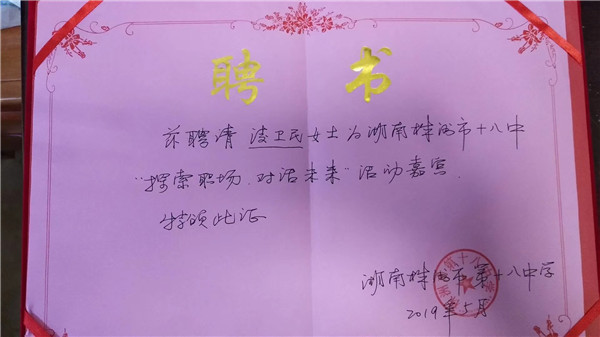 聘 书
兹聘请 凌卫民女士为湖南株洲市十八中
“探索职场.对话未来”活动嘉宾.
特颁此证
湖南株洲市第十八中学
2019年5月